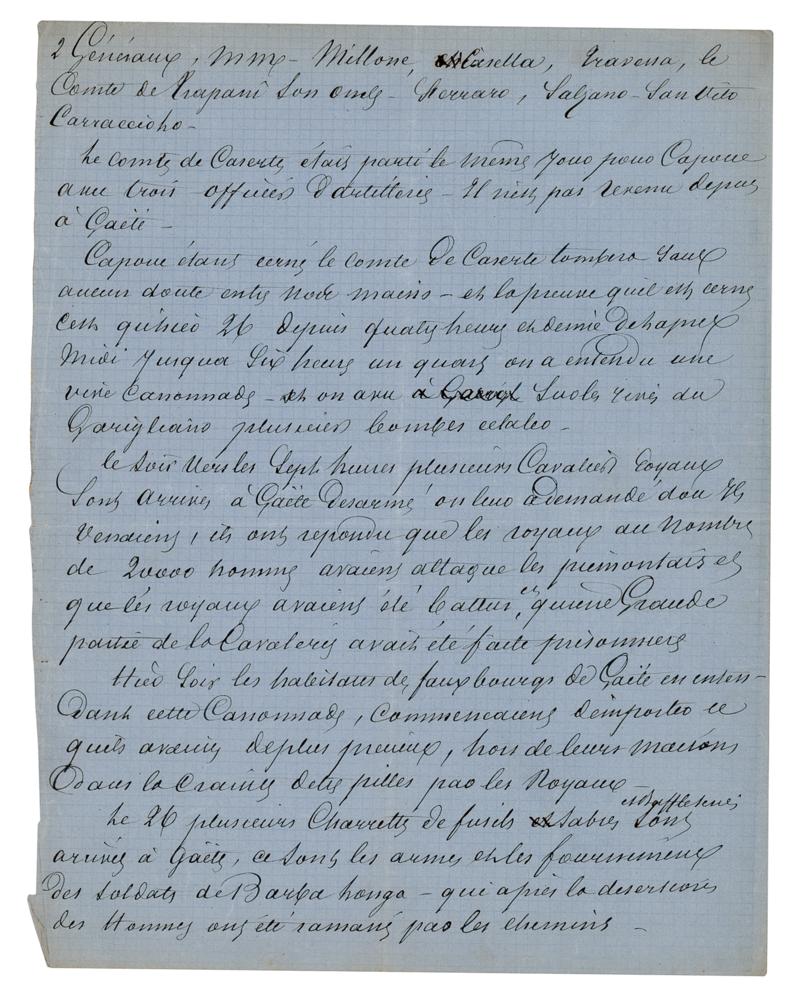 2 Généraux, mm - Millone, Casella, Traversa, le
Comte de Trapani Son oncle - Ferraro, Salzano - San Vito
Carracciolo -
Le comte de Caserte étais parti le même Jour pour Capoue
avec trois officiers D'artillerie - Il n'est pas revenu depuis
à Gaëte -
Capoue étant cerné le comte de Caserte tombera Sans
aucun doute entre Nos mains - et la preuve qu'il est cerné
C'est qu'hier 26 depuis quatre heures et demie De l'apres
Midi Jusqua Six heures un quart on a entendu une
vive Canonnade - et on a vu Sur les rives du
Garigliano plusieurs bombes eclater -
le Soir Vers les Sept heures plusieurs Cavaliers Royaux
Sont arrivés à Gaëte Desarmé on leur a demandé d'ou Ils
Venaient, ils ont repondu que les royaux au Nombre
de 20000 hommes avaient attaque les piemontais et
que les royaux avaient été battus, et qu'une Grande
partie de la Cavalerie avait été faite prisonniere
Hier Soir les habitans des faux bourgs de Gaëte en enten-
dant cette Canonnade, commencaient D'emporter ce
quils avaient de plus precieux, hors de leurs maisons
Dans la Crainte detre pillés par les Royaux -
Le 26 plusieurs Charrettes de fusils Sabres et Buffleteries Sont
arrivés à Gaëte, ce Sont les armes et les fourniment
des Soldats de Barba longa - qui après la desertions
des Hommes ont été ramassés par les chemins -